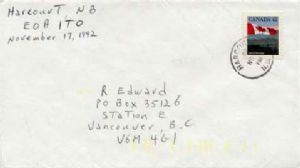 Harcourt, NB
E0A 1T0
November 17, 1992
CANADA 42
HARCOURT
R Edward
PO Box 35126
Station E
Vancouver, B.C
V6M 4G1